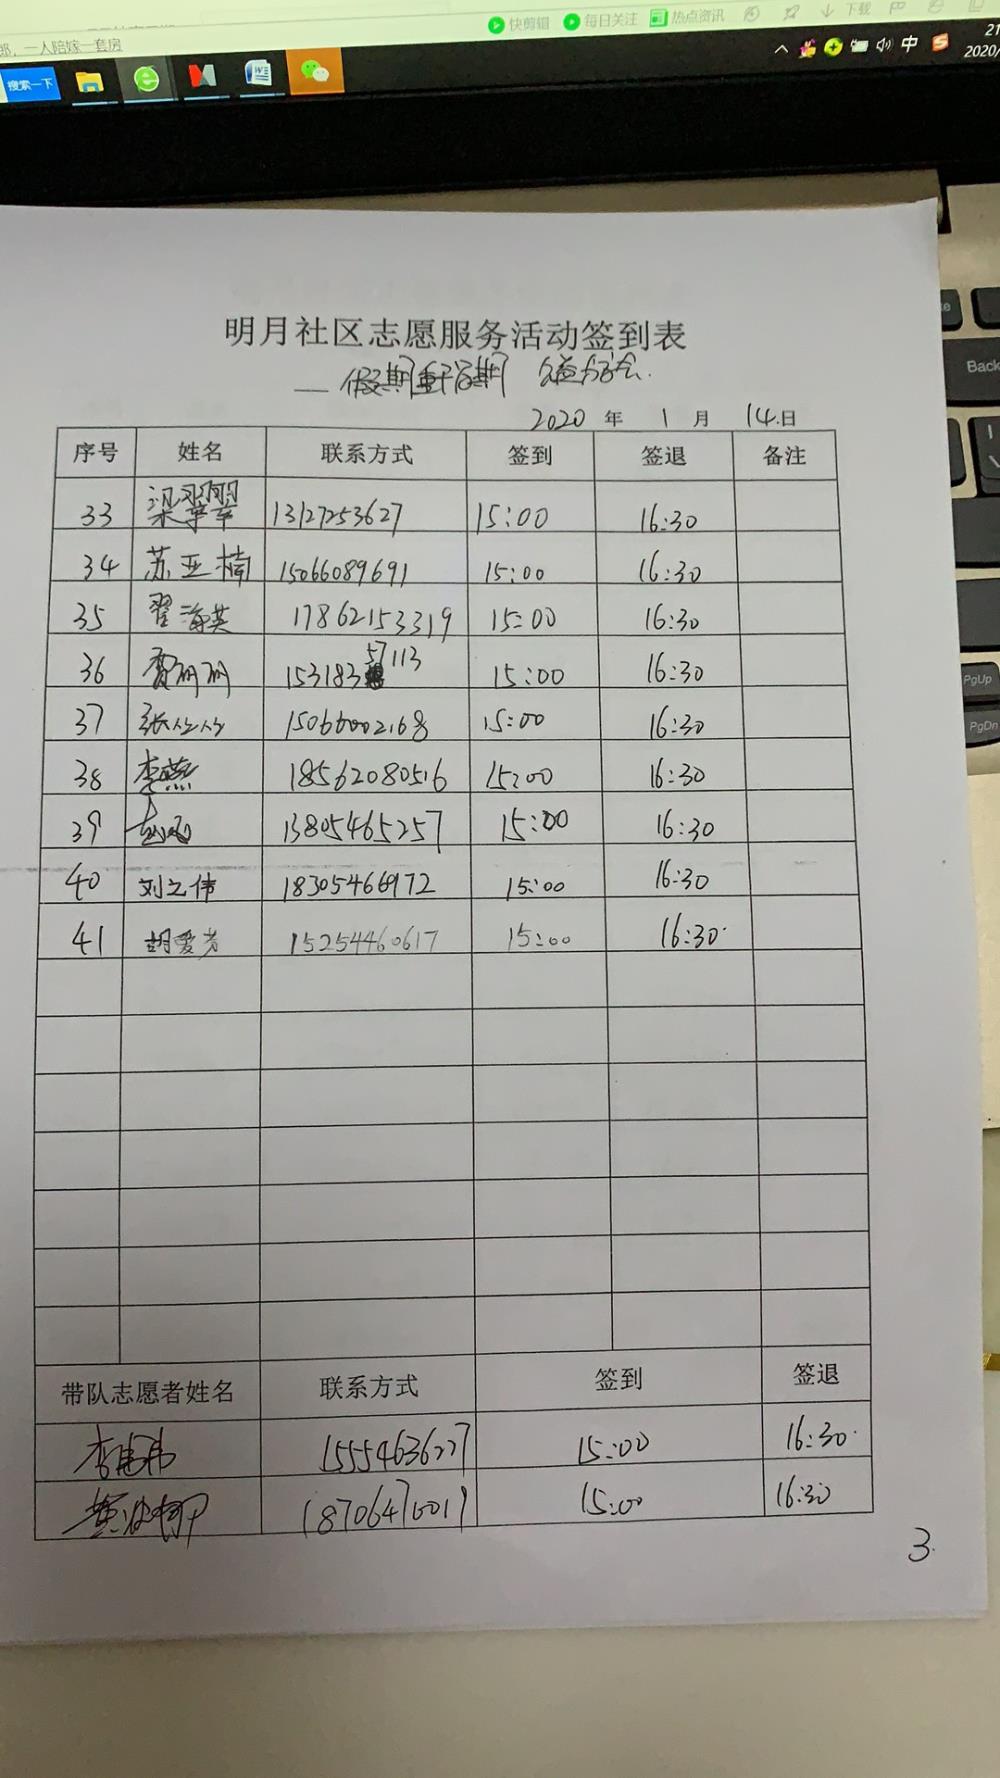 快剪辑 每日关注 热点资讯 下载
一人陪嫁一套房
搜索一下 中 21
2020/
明月社区志愿服务活动签到表
2020 年 1 月 14日
序号 姓名 联系方式 签到 签退 备注
33 梁翠翠 13127253627 15:00 16:30
34 苏亚楠 15066089691 15:00 16:30
35 翟海英 17862153319 15:00 16:30
36 15318357113 15:00 16:30
37 张从从 15066002168 15:00 16:30
38 李燕 18562080516 15:00 16:30
39 13805465257 15:00 16:30
40 刘之伟 18305466972 15:00 16:30
41 胡爱芳 15254460617 15:00 16:30
带队志愿者姓名 联系方式 签到 签退
15554636227 15:00 16:30
18706470019 15:00 16:30
3
Back
PgUp
PgDn